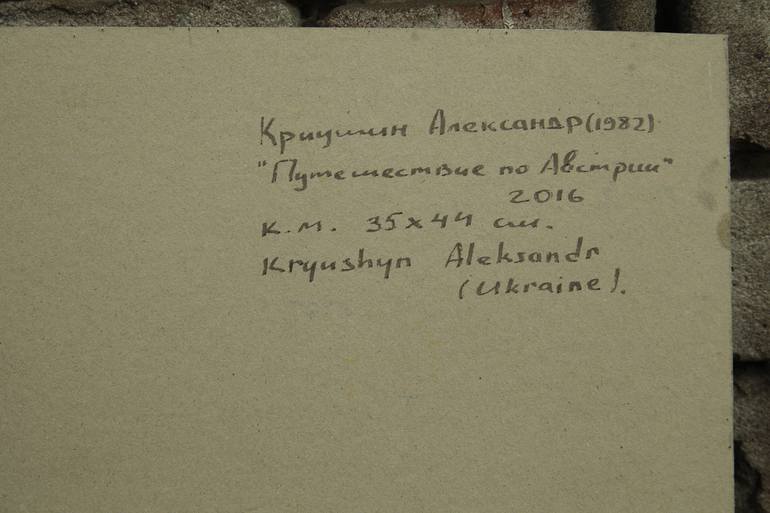 Криушин Александр(1982)
"Путешествие по Австрии"
2016
к.м. 35x44 см.
Kryushyn Aleksandr
(Ukraine).